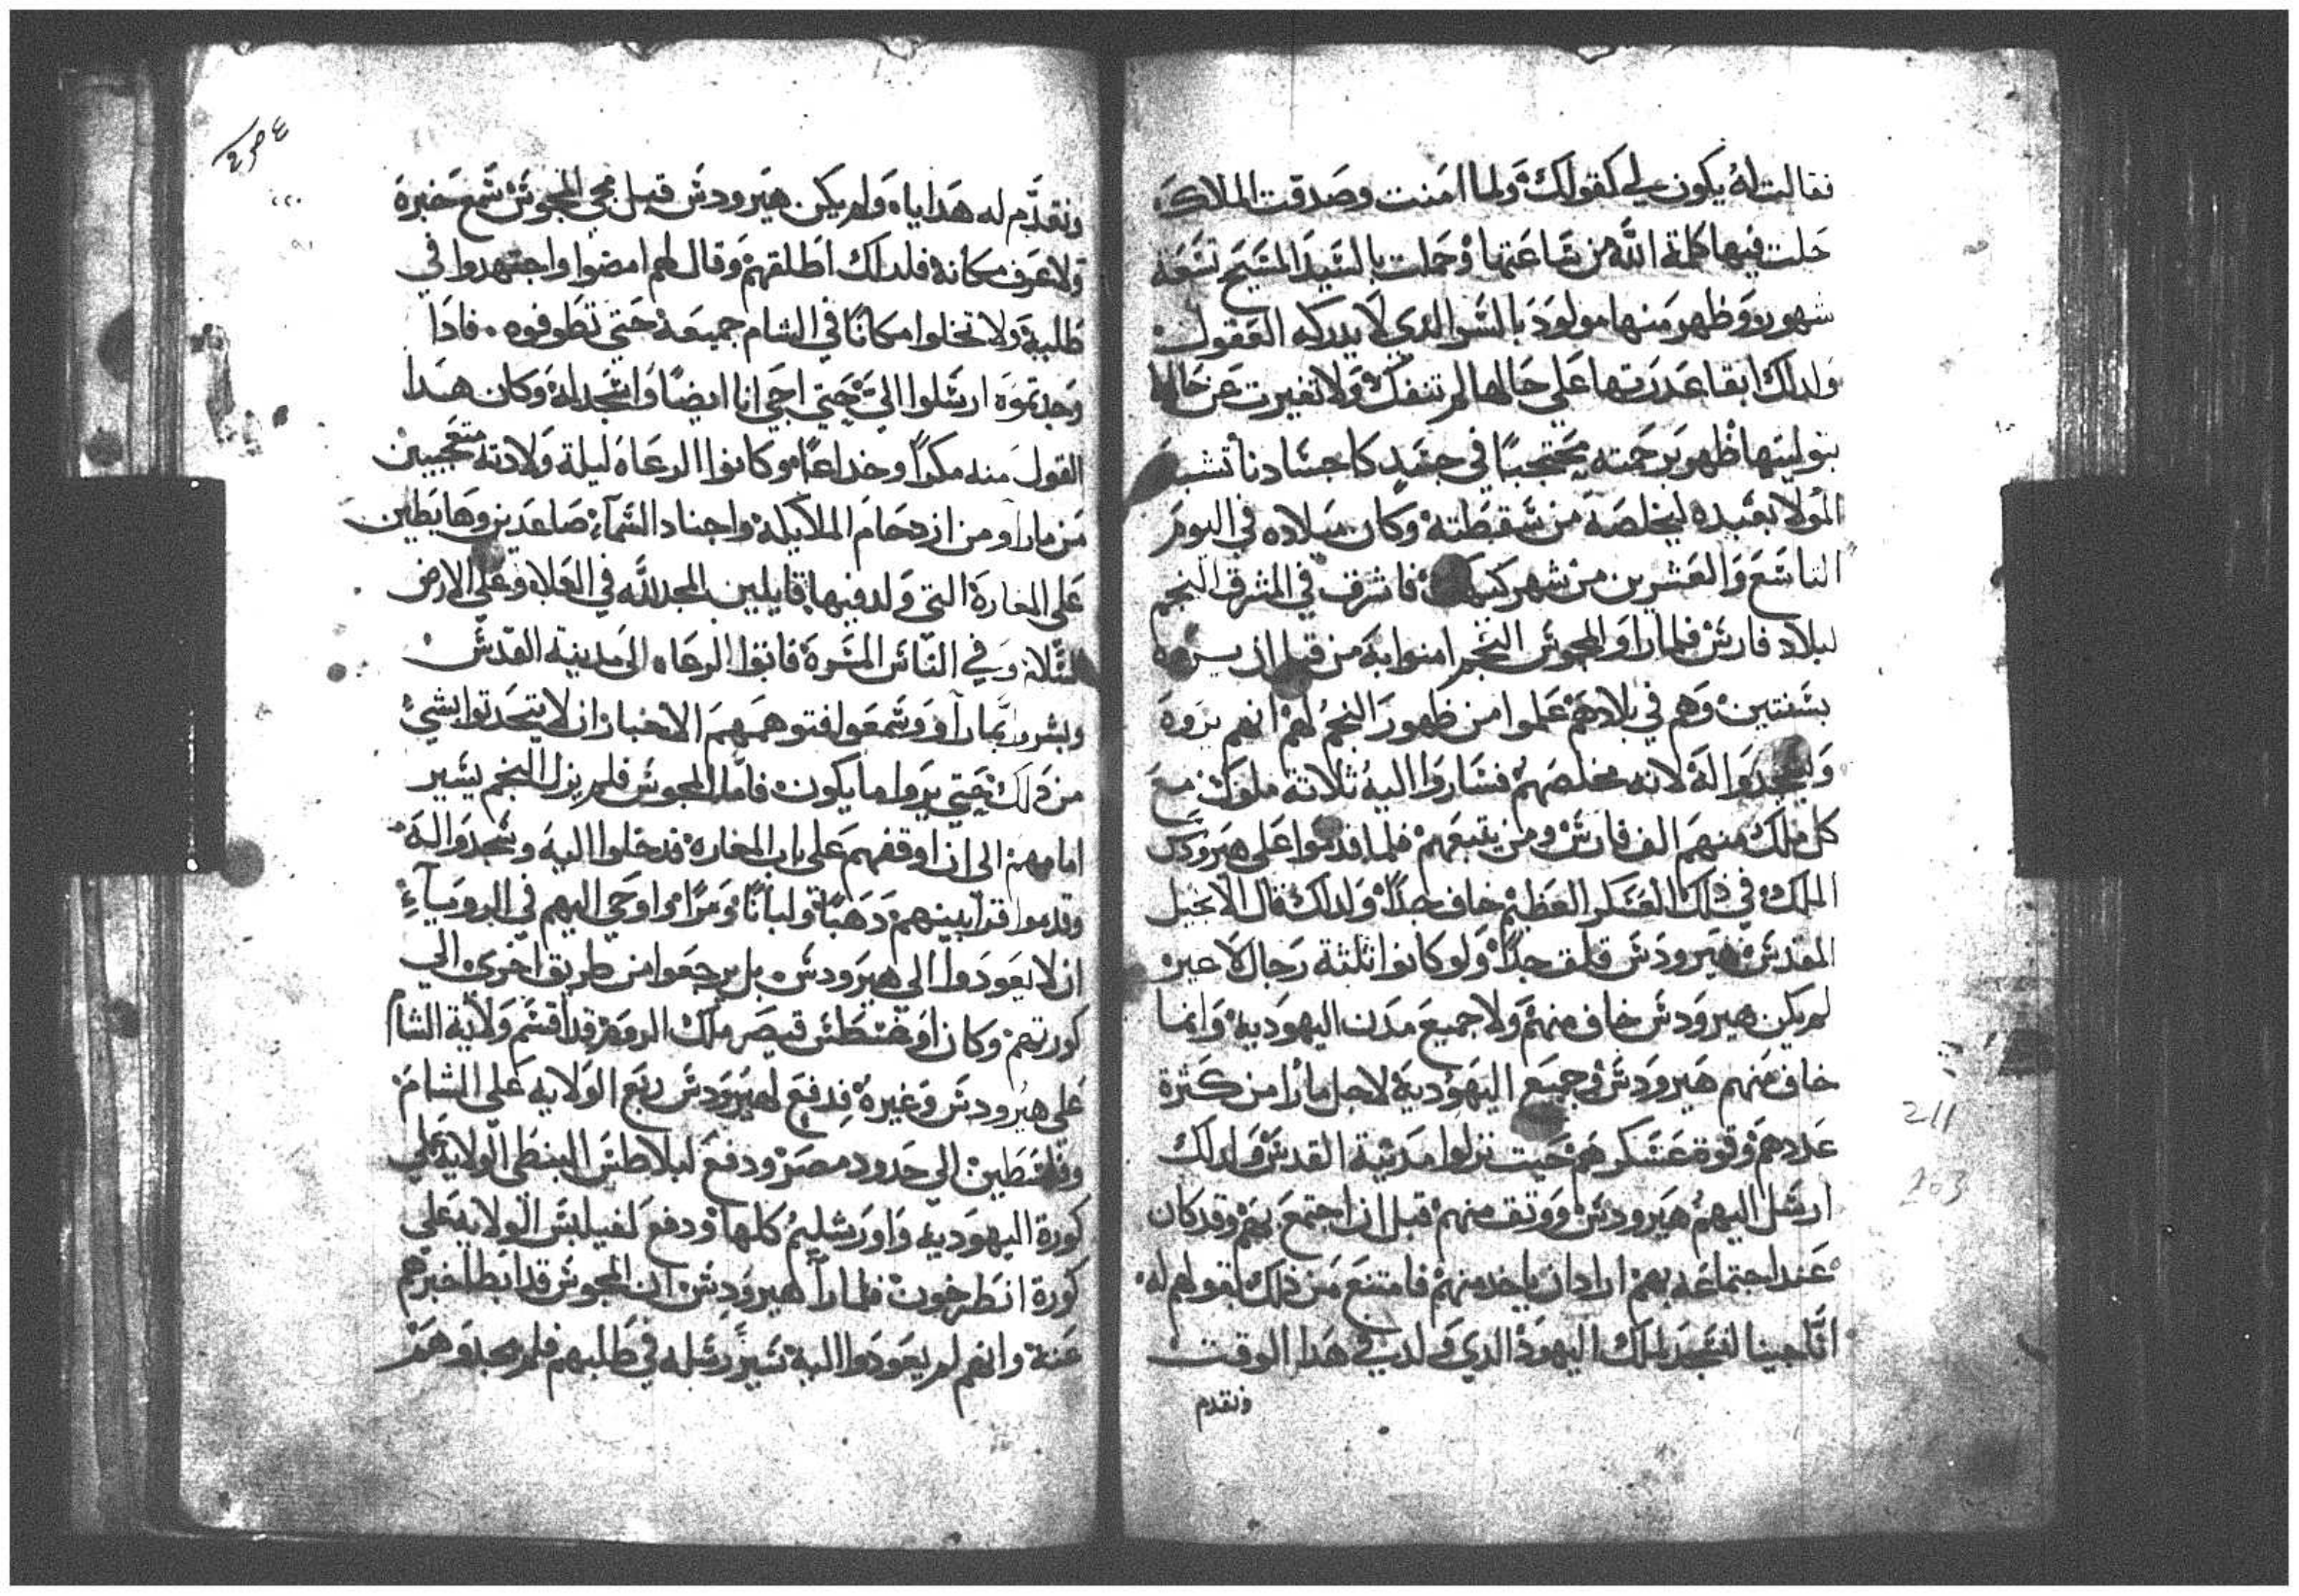 فقالت له يكون لي كقولك ولما امنت وصدقت الملاك
حلت فيها كلمة الله من ساعتها وحملت بالسيد المسيح تسعة
شهور وظهر منها مولود بالسر الدي لا يدركه العقول
ولدلك ابقا عدرتها علي حالها لم تنفك ولا تغيرت عن حالها
بتوليتها ظهر برحمته محتجبا في جسد كاجسادنا تشبه
المولا بعبده ليخلصه من سقطته وكان ميلاده في اليوم
التاسع والعشرين من شهر كيهك فاشرق في المشرق النجم
لبلاد فارس فلما راو المجوس النجم امنوا به من قبل ان يروه
بسنتين وهم في بلادهم علموا من ظهور النجم لهم انهم يروه
ويسجدوا له لانه مخلصهم فساروا اليه ثلاتة ملوك مع
كل ملك منهم الف فارس ومن يتبعهم فلما قدموا علي هيرودس
الملك في ذلك العسكر العظيم خاف جدا ولدلك قال الانجيل
المقدس هيرودس قلق جدا ولو كانوا ثلثة رجال لا غير
لم يكن هيرودس خاف منهم ولا جميع مدن اليهودية وانما
خاف منهم هيرودس وجميع اليهودية لاجل مارا من كثرة
عددهم وقوة عسكرهم حيت نزلوا مدينة القدس ولدلك
ارسل اليهم هيرودس ووتق منهم قبل ان اجتمع بهم وقد كان
عند اجتماعه بهم اراد ان ياخد منهم فامتنع من ذلك بقولهم له
انا جينا لنسجد لملك اليهود الدي ولد في هدا الوقت
ونقدم
ونقدم له هدايا ولم يكن هيرودس قبل مجي المجوس سمع خبره
ولا عرف مكانه فلدلك اطلقهم وقال لهم امضوا واجتهدوا في
طلبه ولا تخلوا مكانا في الشام جميعه حتي تطوفوه فادا
وجدتموه ارسلوا الي حتي اجي انا ايضا واسجد له وكان هدا
القول منه مكرا وخداعا وكانوا الرعاه ليلة ولادته متعجبين
من ماراو من ازدحام الملايكه واجناد السماء صاعدين وهابطين
علي المغارة التي ولد فيها قايلين المجد لله في العلا وعلي الارض
السلامة وفي الناس المسرة فاتوا الرعاه الي مدينة القدس
وبشروا بما راو وسمعوا فتوهمهم الاحبار ان لا يتحدتوا بشي
من ذلك حتي يروا ما يكون فاما المجوس فلم يزل النجم يسير
امامهم الي ان اوقفهم علي باب المغاره فدخلوا اليه وسجدوا له
وقدموا قرابينهم دهبا ولبانا ومرا واوحي اليهم في الروياء
ان لا يعودوا الي هيرودس بل يرجعوا من طريق اخري الي
كورتهم وكان اوغسطس قيصر ملك الروم قد اقسم ولاية الشام
علي هيرودس وغيره فدفع لهيرودس ربع الولايه علي الشام
وفلسطين الي حدود مصر ودفع لبلاطس البنطي الولاية علي
كورة اليهوديه واورشليم كلها ودفع لفيلبس الولايه علي
كورة انطرخون فلما را هيرودس ان المجوس قد ابطا خبرهم
عنه وانهم لم يعودوا اليه سير رسله في طلبهم فلم يجدوهم
211
203